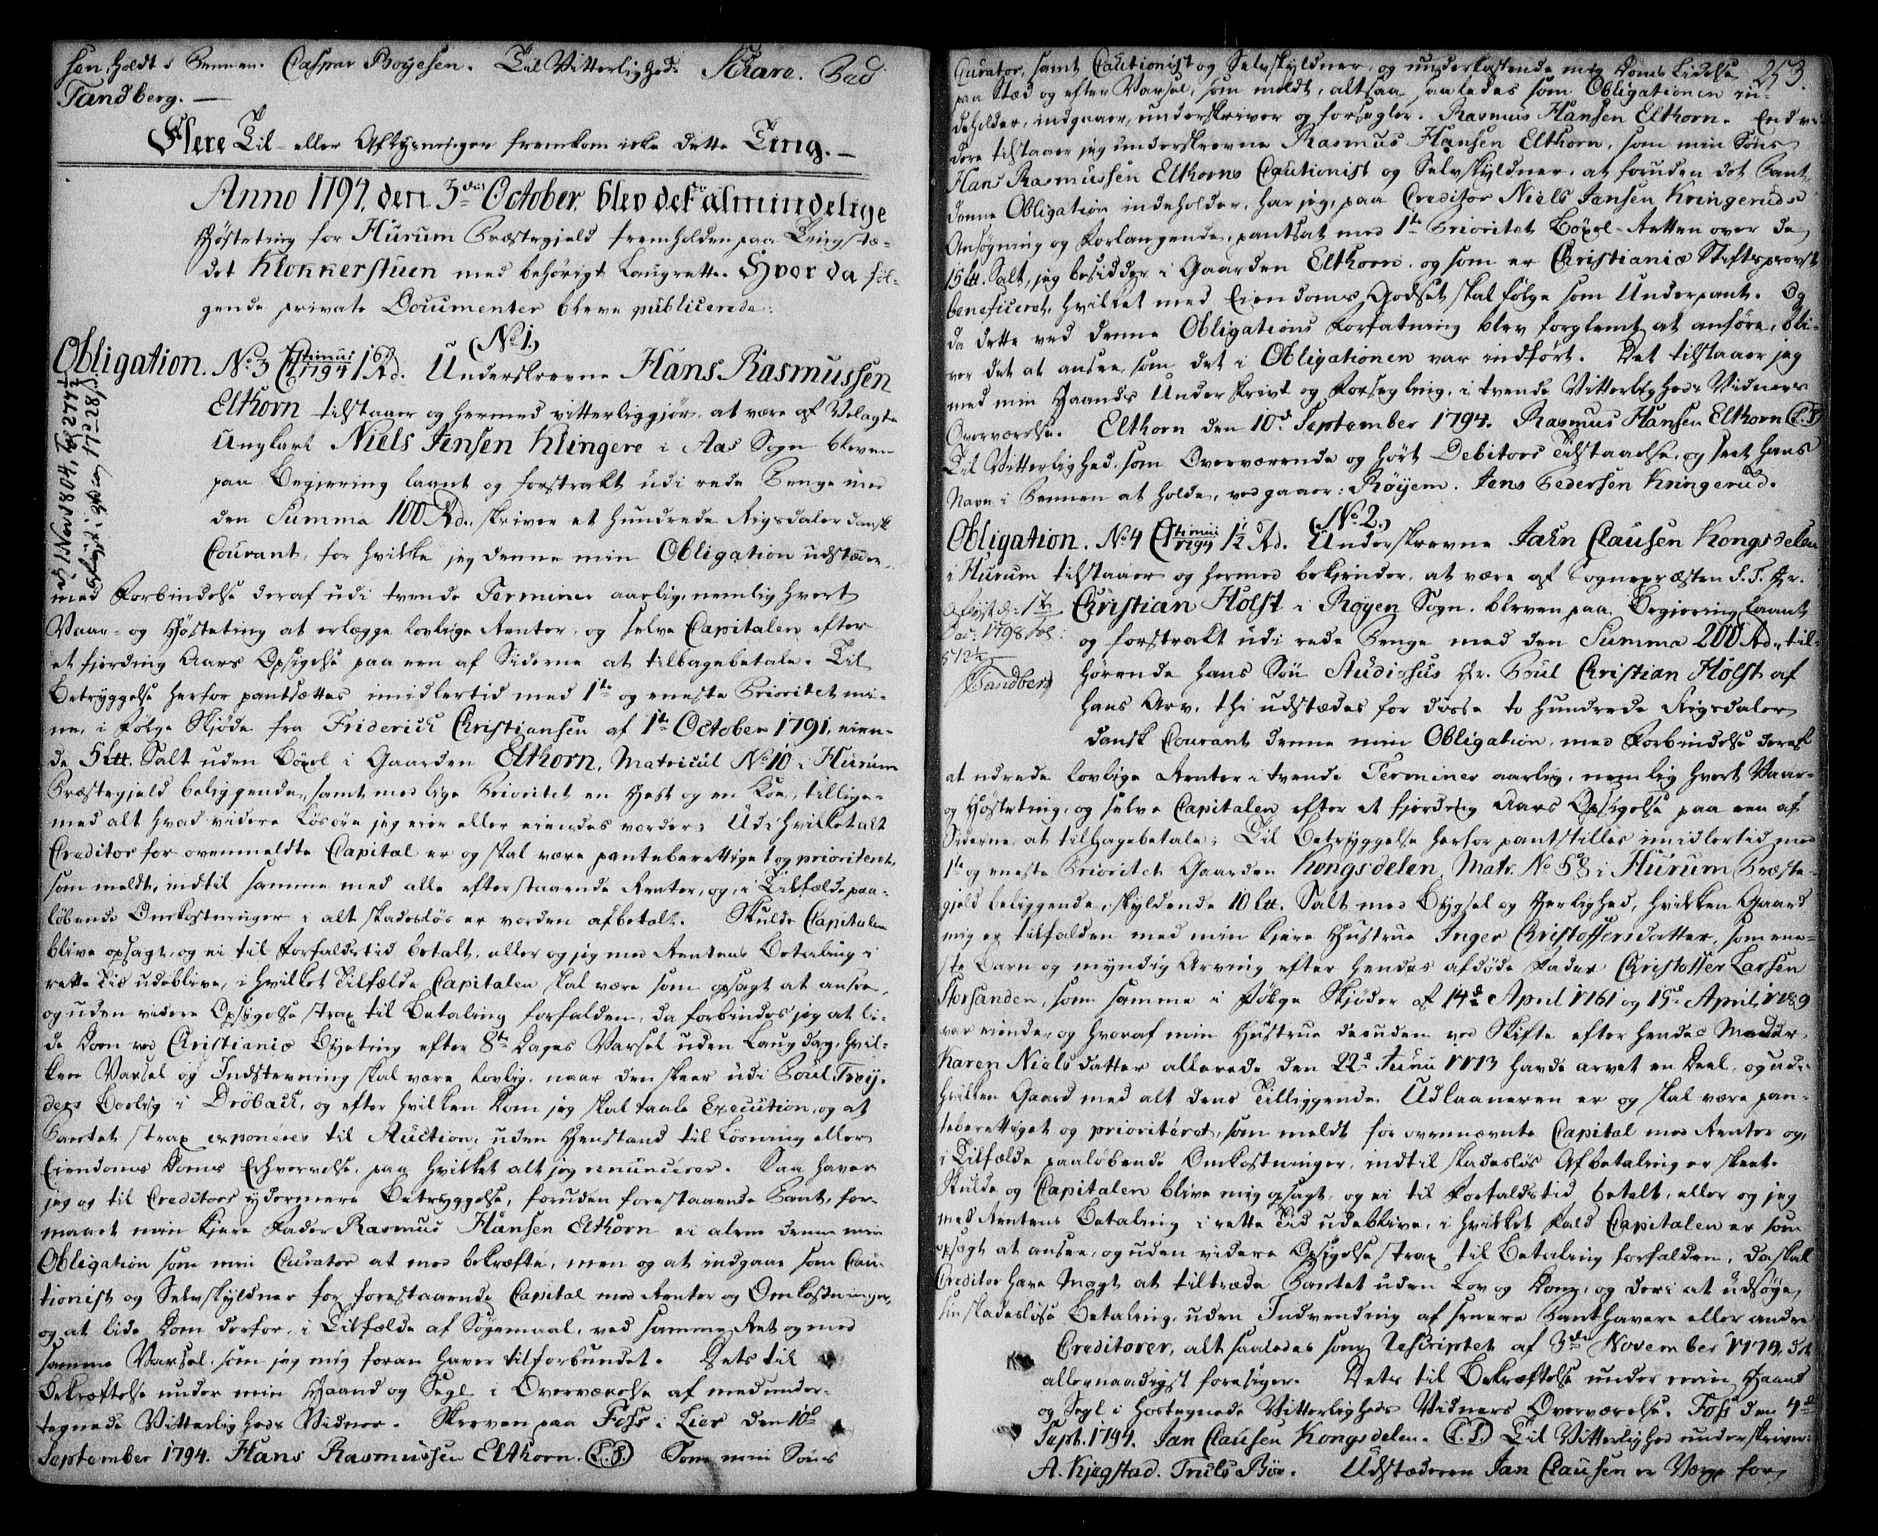 sen, holdt i Pennen. Caspar Boyesen. Til Vitterlighed Skare. Bad
Tandberg. —
Flere Til- eller Aflysninger fremkom icke dette Ting. —
Anno 1794, den 3die October, blev det almindelige
Høsteting for Hurum Præstegjeld fremholden paa Tingstæ-
det Klokkerstuen med behørigt Laugrette. Hvor da føl-
gende private Documenter bleve publicerede:
(No 1.)
Obligation. No 3 1794 16 Rd. Underskrevne Hans Rasmussen
Elthorn tilstaaer og hermed vitterliggiør, at være af Velagte
Ungkarl Niels Jensen Klingere i Aas Sogn bleven
paa Begiering laant og forstrakt udi rede Penge med
den Summa 100 Rd., skriver et hundrede Rigsdaler dansk
Courant, for hvilke jeg denne min Obligation udstæder,
med Forbindelse deraf udi tvende Terminer aarlig, nemlig hvert
Vaar- og Høsteting at erlægge lovlige Renter, og selve Capitalen efter
et fjerding Aars Opsigelse paa een af Siderne at tilbagebetale. Til
Betryggelse herfor pantsættes imidlertid med 1te og eneste Prioritet mi-
ne, i Følge Skjøde fra Friderich Christiansen af 1te October 1791, eien-
de 5 Lt. Salt uden Böxel i Gaarden Elthorn, Matricul No 10 i Hurum
Præstegjeld beliggende, samt med lige Prioritet en Hest og en Koe, tillige-
med alt hvad videre Løsøre jeg eier eller eiendes vorder; Udi hvilket alt
Creditor for ovenmeldte Capital er og skal være panteberettiget og prioriteret,
som meldt, indtil samme med alle efterstaaende Renter, og, i Tilfælde paa-
løbende Omkostninger i alt skadesløs er vorden afbetalt. Skulde Capitalen
blive opsagt, og ei til Forfaldstid betalt, eller og jeg med Rentens Betaling i
rette Tid udeblive, i hvilket Tilfælde Capitalen skal være som opsagt at ansee,
og uden videre Opsigelse strax til Betaling forfalden, da forbindes jeg at li-
de Dom ved Christiania Byeting efter 8te Dages Varsel uden Laugdag, hvil-
ken Varsel og Indstevning skal være lovlig, naar den skeer udi Poul Trøy-
ders Boelig i Drøbach, og efter hvilken Dom jeg skal taale Execution, og at
Pantet strax exponeres til Auction, uden Henstand til Løsning eller
Eiendoms Doms Erhvervelse, paa hvilket alt jeg renuncerer. Saa haver
jeg og til Creditors ydermere Betryggelse, foruden forestaaende Pant, for-
maaet min kjere Fader Rasmus Hansen Elthorn ei alene denne min
Obligation som min Curator at med bekræfte, men og at indgaae som Cau-
tionist og Selvskyldner for forestaaende Capital med Renter og Omkostninger,
og at lide Dom derfor, i Tilfælde af Søgemaal, ved samme Ret og med
samme Varsel, som jeg mig foran haver tilforbundet. Dets til
Bekræftelse under min Haand og Segl i Overværelse af medunder-
tegnede Vitterligheds Vidner. Skreven paa Foss i Lier den 10de
September 1794. Hans Rasmussen Elthorn. (L.S.) Som min Søns
253.
Curator, samt Cautionist og Selvskyldner, og underkastende mig Doms Lidelse
paa Stæd og efter Varsel, som meldt, altsaa, saaledes som Obligationen in-
deholder, indgaaer, underskriver og forsegler. Rasmus Hansen Elthorn. End vi-
dere tilstaaer jeg underskrevne Rasmus Hansen Elthorn, som min Søns
Hans Rasmussen Elthorns Cautionist og Selvskyldner, at foruden det Pant
denne Obligation indeholder, har jeg, paa Creditor Niels Jensen Kringeruds
Ansøgning og Forlangende, pantsat med 1te Prioritet Böxel-Retten over de
15 Lt. Salt, jeg besidder i Gaarden Elthorn, og som er Christianiæ Stiftsprovst
beneficeret, hvilket med Eiendoms Godset skal følge som Underpant. Og
da dette ved denne Obligations Forfatning blev forglemt at anføre, bli-
ver det at ansee, som det i Obligationen var indført. Det tilstaaer jeg
med min Haands Underskrivt og Forsegling, i tvende Vitterligheds Vidners
Overværelse. Elthorn den 10de September 1794. Rasmus Hansen Elthorn (L.S.)
Til Vitterlighed, som Overværende og hørt Debitors Tilstaaelse, og seet hans
Navn i Pennen at holde, vedgaaer: Røyem. Jens Pedersen Kringerud.
(No 2.)
Obligation. No 4 1794 1½ Rd. Underskrevne Jahn Clausen Kongsdelen
i Hurum tilstaaer og hermed bekiender, at være af Sognepræsten S. T. Hr.
Christian Holst i Røyen Sogn, bleven paa Begiering laant
og forstrakt udi rede Penge med den Summa 200 Rd., til-
hørende hans Søn Studiosus Hr. Poul Christian Holst af
hans Arv, thi udstædes for disse to hundrede Rigsdaler
dansk Courant denne min Obligation, med Forbindelse deraf
at udrede lovlige Renter i tvende Terminer aarlig, nemlig hvert Vaar-
og Høsteting, og selve Capitalen efter et fjerding Aars Opsigelse paa een af
Siderne at tilbagebetale; Til Betryggelse herfor pantstilles imidlertid med
1te og eneste Prioritet Gaarden Kongsdelen, Matr. No 58 i Hurum Præste-
gjeld beliggende, skyldende 10 Lt. Salt med Bygsel og Herlighed, hvilken Gaard
mig er tilfalden med min kjere Hustrue Inger Christoffersdatter, som ene-
ste Barn og myndig Arving efter hendes afdøde Fader Christoffer Larsen
Storsanden, som samme i Følge Skjøder af 14de April 1761 og 15de April 1789
var eiende, og hvoraf min Hustrue desuden ved Skifte efter hendes Moder
Karen Nielsdatter allerede den 22de Junii 1773 havde arvet en Deel, og udi
hvilken Gaard med alt dens Tilliggende Udlaaneren er og skal være pan-
teberettiget og prioriteret, som meldt for ovennævnte Capital med Renter og,
i Tilfælde paaløbende Omkostninger, indtil skadesløs Afbetaling er skeet.
Skulde og Capitalen blive mig opsagt, og ei til Forfaldstid betalt, eller og jeg
med Rentens Betaling i rette Tid udeblive, i hvilket Fald Capitalen er som
opsagt at ansee, og uden videre Opsigelse strax til Betaling forfalden, da skal
Creditor have Magt at tiltræde Pantet uden Lov og Dom, og deri at udsøge
sin skadesløse Betaling, uden Indvending af senere Panthavere eller andre
Creditorer, alt saaledes som Rescriptet af 3die November 1779, det
allernaadigst foresiger. Dets til Bekræftelse under min Haand
og Segl i hostegnede Vitterligheds Vidners Overværelse. Foss den 4de
Sept. 1794. Jan Clausen Kongsdelen. (L.S.) Til Vitterlighed underskriver:
A. Kjegstad. Truls Böe. Udstæderen Jan Clausen er Værge for